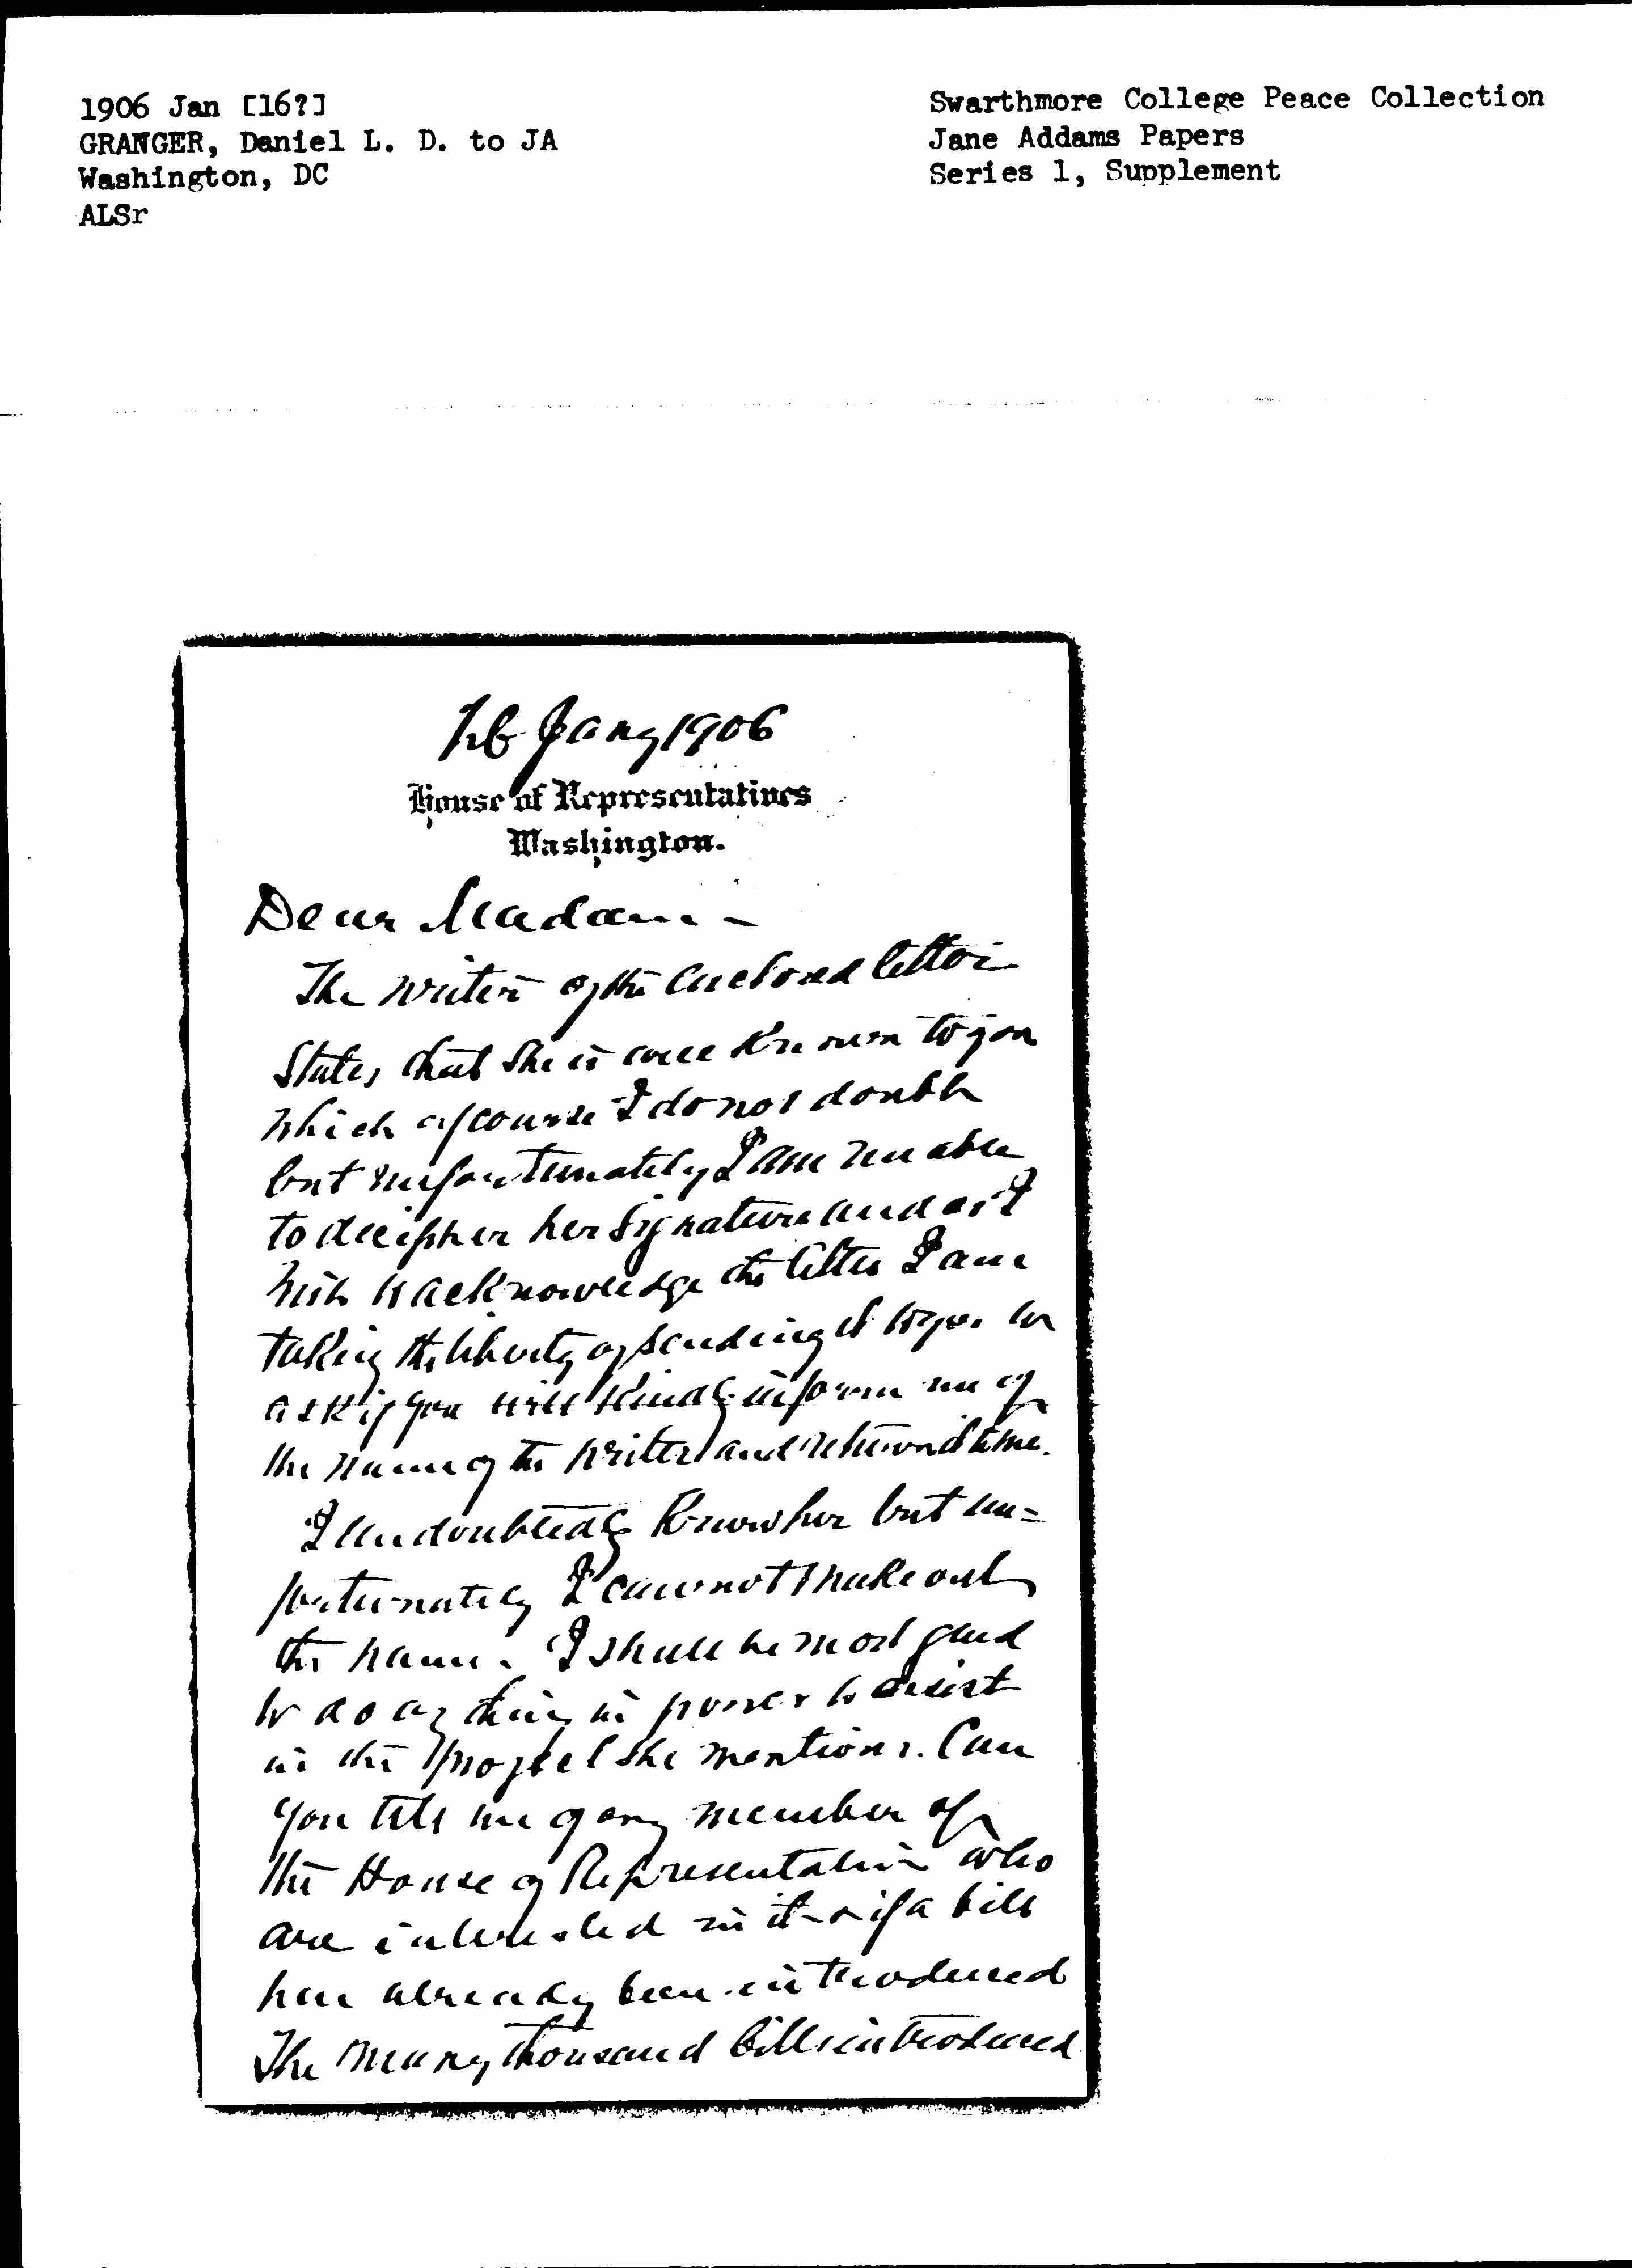 1906 Jan [16?]
GRANGER, Daniel L. D. to JA
Washington, DC
ALSr
Swarthmore College Peace Collection
Jane Addams Papers
Series 1, Supplement
Jany 1906
House of Representatives
Washington.
Dear Madam -
The writer of the enclosed letter
states that she is well known to you
which of course I do not doubt
but unfortunately I am unable
to decipher her signature and as I
wish to acknowledge the letter I am
taking the liberty of sending it to you to
ask if you will kindly inform me of
the name of the writer and return it to me.
I undoubtedly know her but un=
fortunately I cannot make out
the name. I shall be most glad
to do anything in power to assist
in the project she mentions. Can
you tell me of any member of
the House of Representatives who
are interested in it - or if a bill
has already been introduced
The many thousand bills introduced